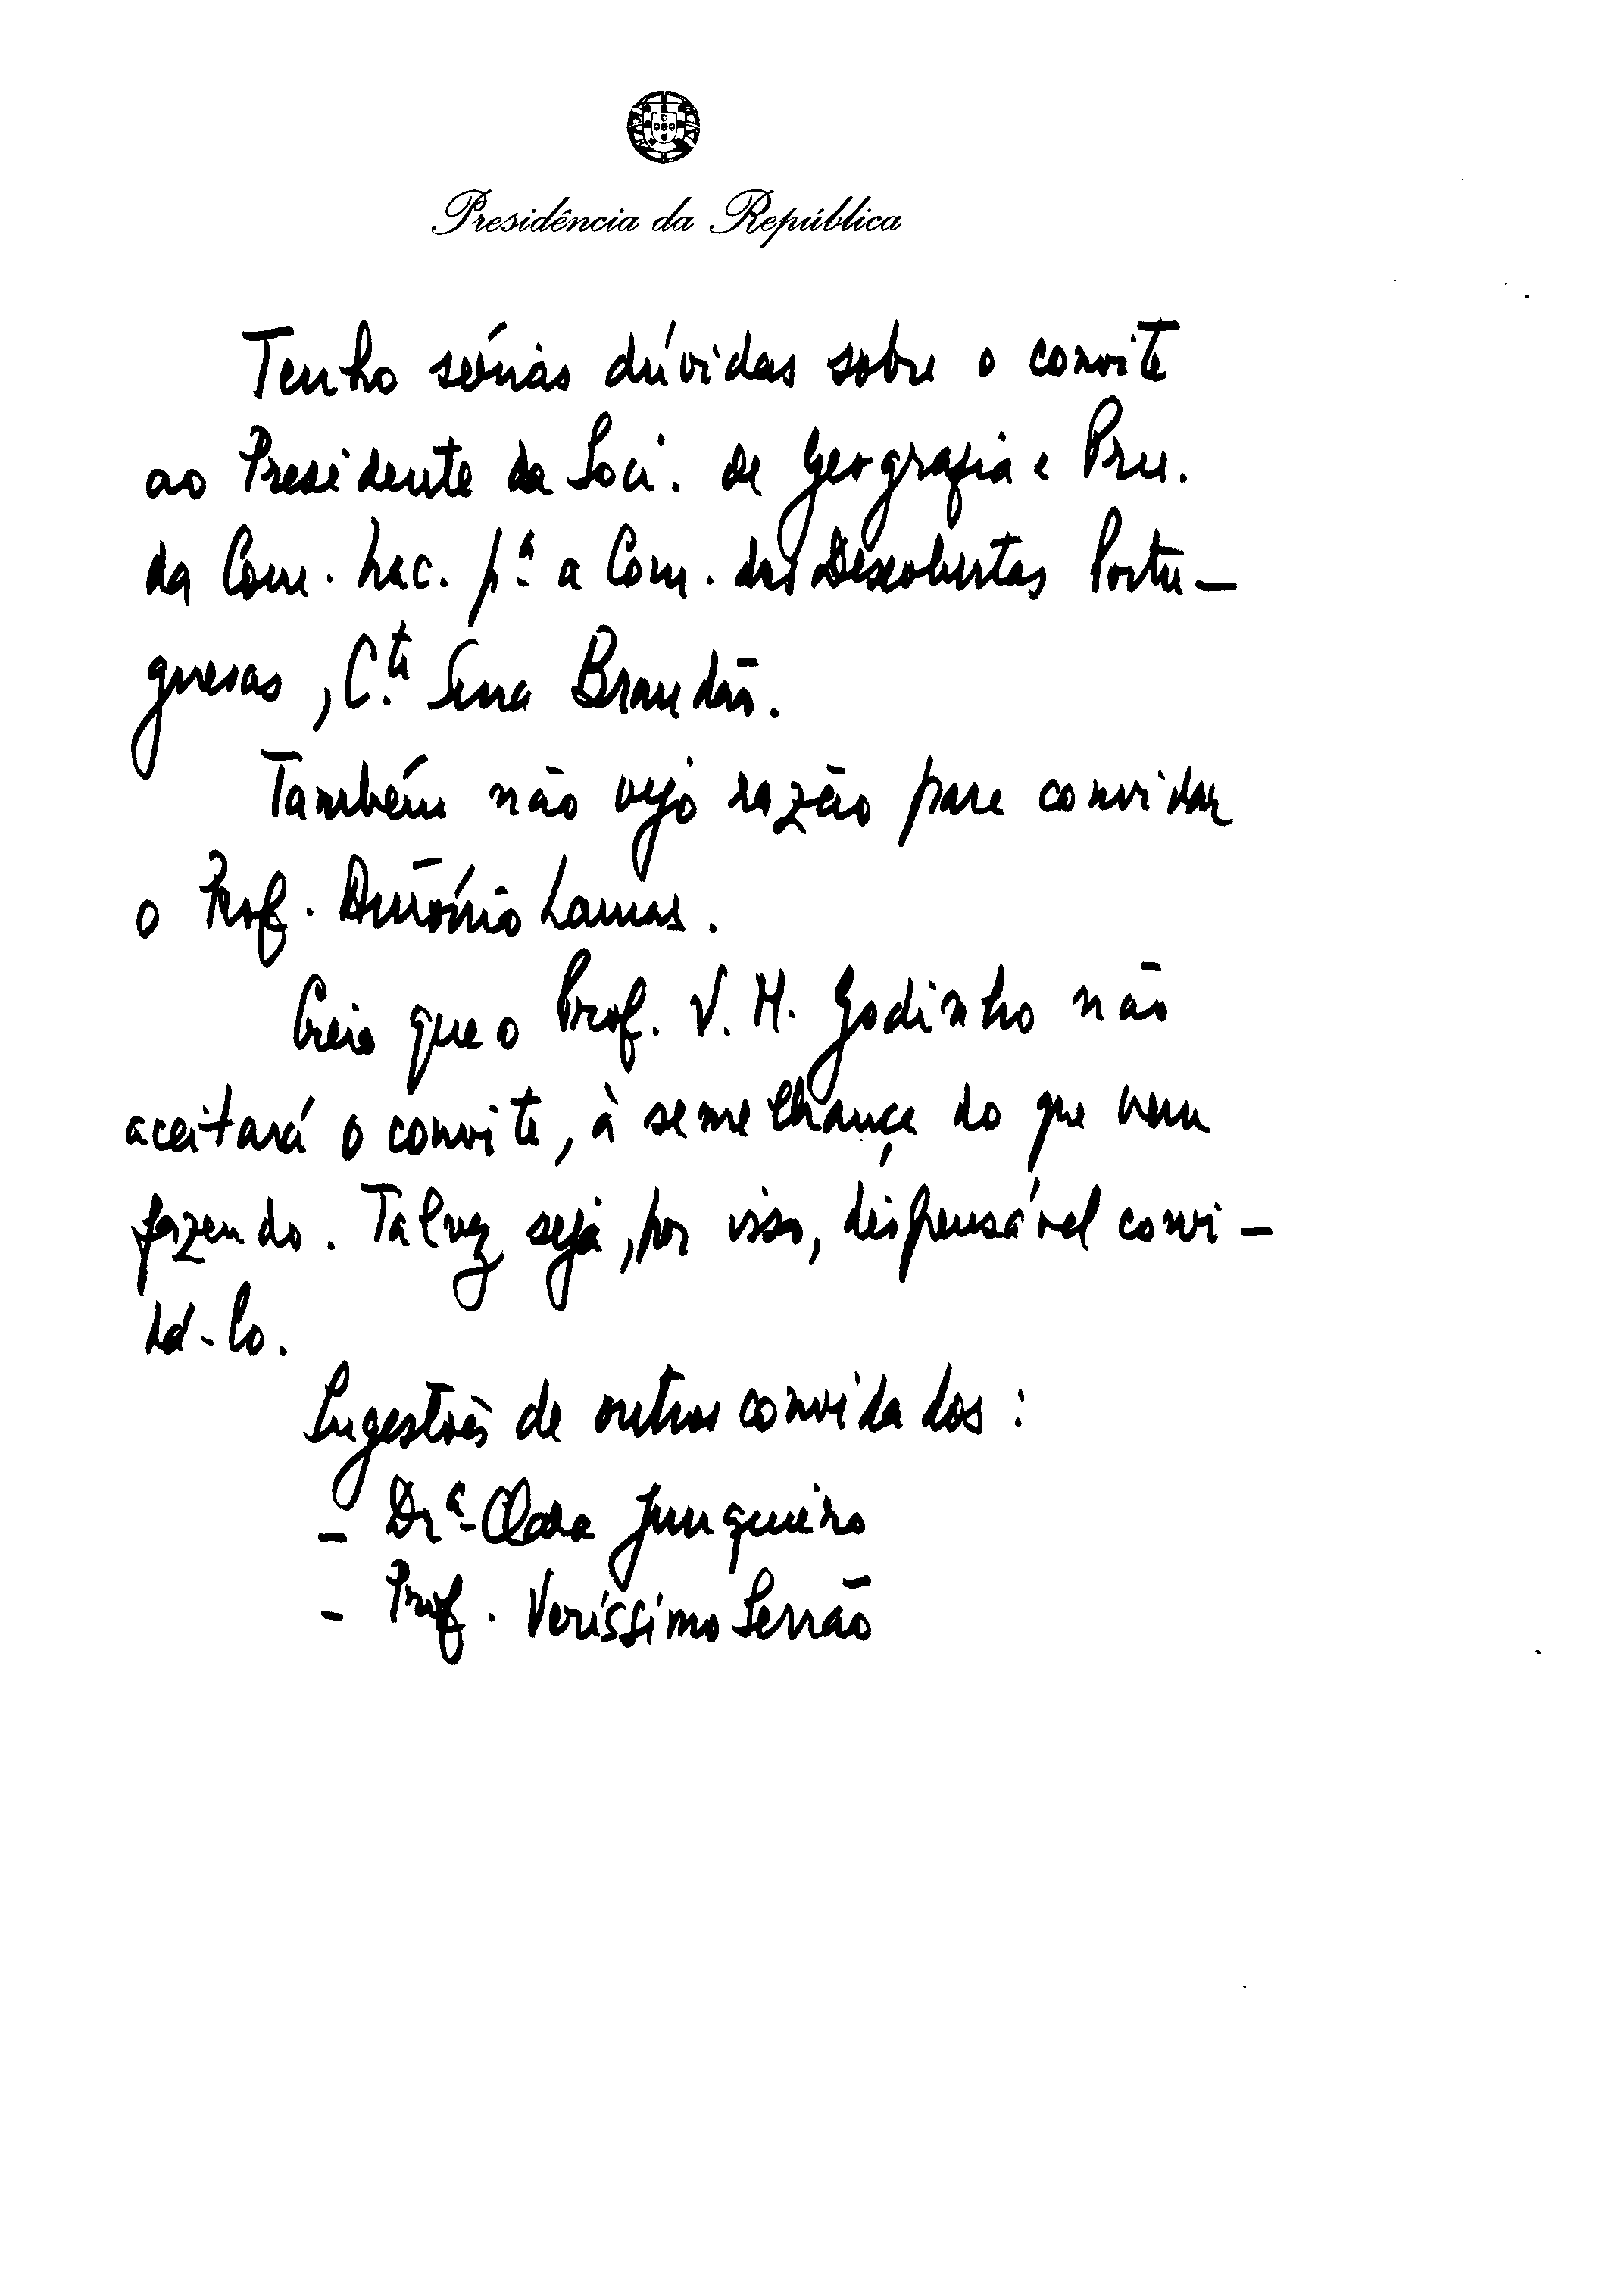 Presidência da República
Tenho sérias dúvidas sobre o convite
ao Presidente da Soci. de Geografia e Pres.
da Com. Nac. pª a Com. das Descobertas Portu-
guesas, C.te Serra Brandão.
Também não vejo razão para convidar
o Prof. António Lamas.
Creio que o Prof. V. M. Godinho não
aceitará o convite, à semelhança do que vem
fazendo. Talvez seja, por isso, dispensável convi-
dá-lo.
Sugestões de outros convidados:
- Drª Clara Junqueiro
- Prof. Veríssimo Serrão